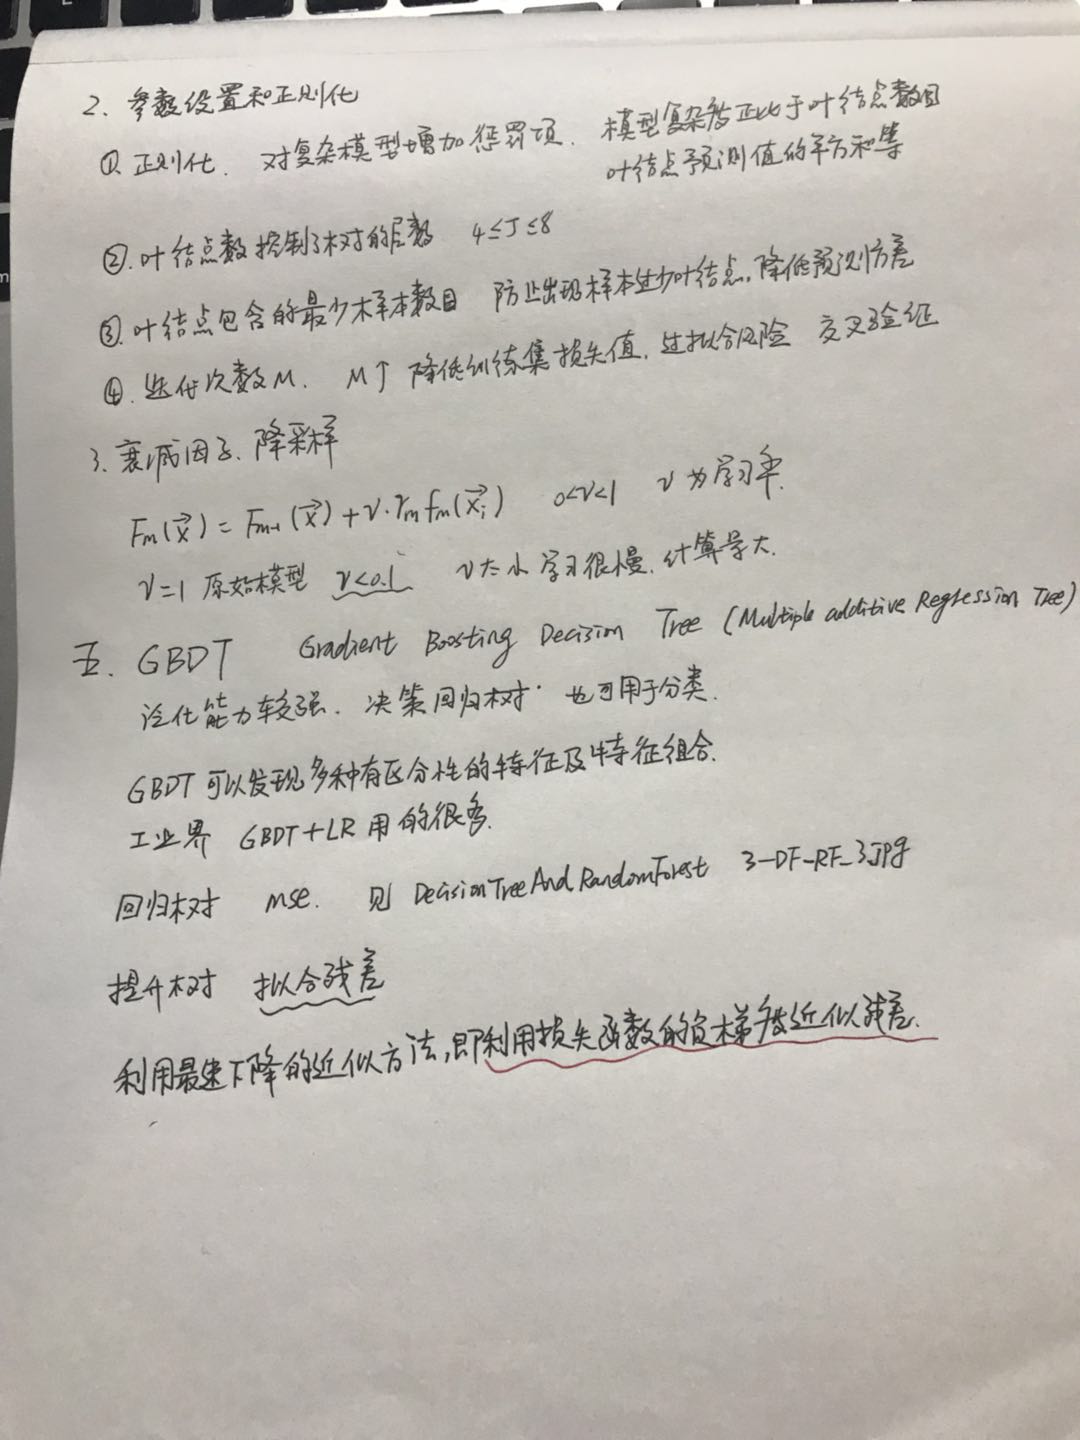 2、参数设置和正则化
①.正则化. 对复杂模型增加惩罚项. 模型复杂度正比于叶结点数目
叶结点预测值的平方和等
②.叶结点数控制了树的层数 4≤J≤8
③.叶结点包含的最少样本数目 防止出现样本过少叶结点,降低预测方差
④.迭代次数M. M↑ 降低训练集损失值,过拟合风险 交叉验证
3.衰减因子、降采样
Fm(x⃗) = Fm-1(x⃗) + ν·γm fm(x⃗i) 0<ν<1 ν为学习率.
ν=1 原始模型 ν<0.1 ν太小 学习很慢.计算量大.
五. GBDT Gradient Boosting Decision Tree (Multiple additive Regression Tree)
泛化能力较强. 决策回归树. 也可用于分类.
GBDT可以发现多种有区分性的特征及特征组合.
工业界 GBDT+LR 用的很多.
回归树 mse. 见 DecisionTreeAndRandomForest 3-DF-RF_3jpg
提升树 拟合残差
利用最速下降的近似方法,即利用损失函数的负梯度近似残差.